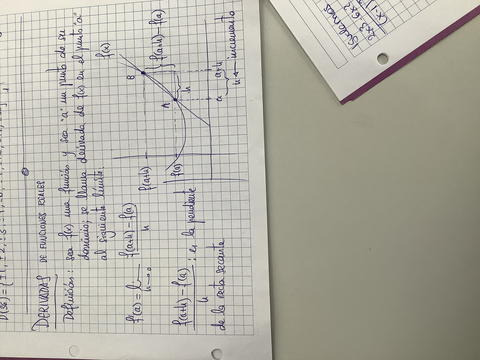 D(36) = {±1, ±2, ±3,
DERIVADAS DE FUNCIONES REALES
Definición: sea f(x) una función y sea "a" un punto de su
dominio, se llama derivada de f(x) en el punto "a"
al siguiente límite:
f'(a) = lim f(a+h) - f(a)
h→0 h
f(a+h) - f(a) : es la pendiente
h
de la recta secante
f(x)
B
f(a+h)
f(a+h) - f(a)
A
h
f(a)
a a+h
h ← incremento
2x³ 6x²
(x-1)